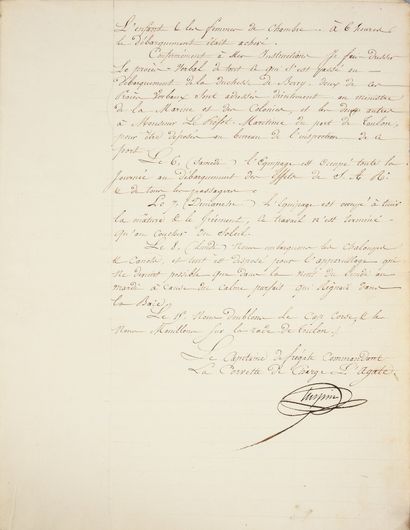 L'enfant & les femmes de Chambre. à 6 heures
le débarquement était achevé.
Conformément à Mes Instructions Je fis dresser
Le procès-Verbal de tout ce qui s'est passé au
débarquement de la duchesse de Berry, deux de ces
procès Verbaux sont adressés directement au ministre
de la Marine et des Colonies et les deux autres
à Monsieur Le Préfet Maritime du port de Toulon,
pour être déposés au bureau de l'inspection de ce
port.
Le 6, (Samedi) l'équipage est occupé toute la
journée au débarquement des Effets de S. A. R.
& de tous les passagers.
Le 7, (Dimanche) L'équipage est occupé à tenir
la mâture & le Gréement, ce travail n'est terminé
qu'au coucher du Soleil.
Le 8, (Lundi) Nous embarquons les Chaloupes
& Canots, et tout est disposé pour l'appareillage qui
ne devient possible que dans la nuit du lundi au
mardi à cause du calme parfait qui régnait dans
la Baie,
Le Nous Doublons le Cap Corse, & le
Nous Mouillons sur la rade de Toulon.
Le Capitaine de frégate Commandant
La Corvette de Charge L'Agate.
Turpin